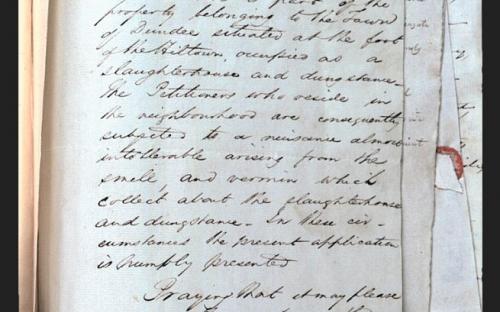 property belonging to the Town
of Dundee situated at the foot
of the Hilltown, occupied as a
slaughterhouse and dungstance.
The Petitioners who reside in
the neighbourhood are consequently
subjected to a nuisance almost
intollerable arising from the
smell, and vermin which
collect about the slaughterhouse
and dungstance. In these cir-
cumstances the present application
is humbly presented
Praying that it may please